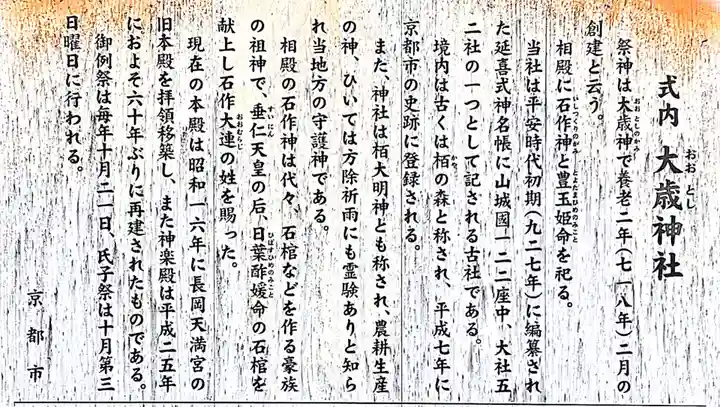 式内 大歳神社
祭神は大歳神で養老二年(七一八年)二月の
創建と云う。
相殿に石作神と豊玉姫命を祀る。
当社は平安時代初期(九二七年)に編纂され
た延喜式神名帳に山城國一二二座中、大社五
二社の一つとして記される古社である。
境内は古くは栢の森と称され、平成七年に
京都市の史跡に登録される。
また、神社は栢大明神とも称され、農耕生産
の神、ひいては方除祈雨にも霊験ありと知ら
れ当地方の守護神である。
相殿の石作神は代々、石棺などを作る豪族
の祖神で、垂仁天皇の后、日葉酢媛命の石棺を
献上し石作大連の姓を賜った。
現在の本殿は昭和一六年に長岡天満宮の
旧本殿を拝領移築し、また神楽殿は平成二五年
におよそ六十年ぶりに再建されたものである。
御例祭は毎年十月二一日、氏子祭は十月第三
日曜日に行われる。
京都市